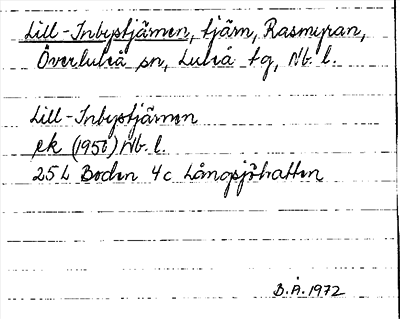 Lill-Inbystjärnen, tjärn, Rasmyran,
Överluleå sn, Luleå tg, Nb. l.
Lill-Inbystjärnen
ek (1956) Nb. l.
25 L Boden 4c Långsjöhatten
B.Å. 1972